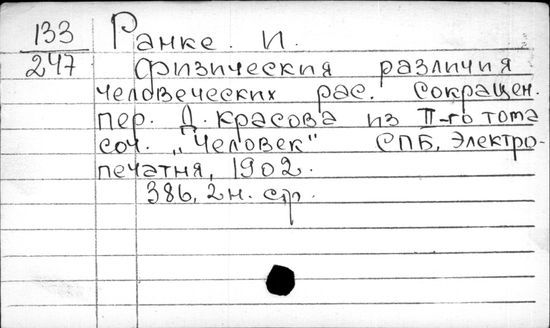 133
247
Ранке. И.
Физическия различия
человеческих рас. Сокращен.
пер. Д. Красова из II-го тома
соч. „Человек" СПБ, Электро-
печатня, 1902.
386, 2 н. стр.